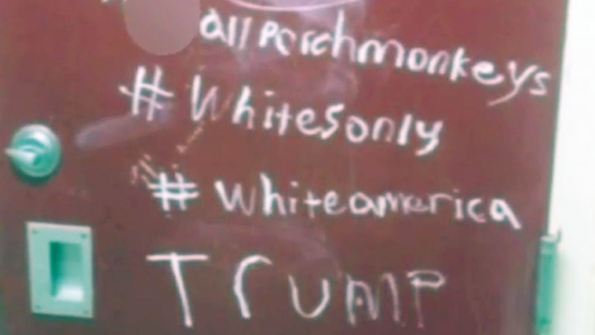 all Porchmonkeys
# Whitesonly
# whiteamerica
TrUMP